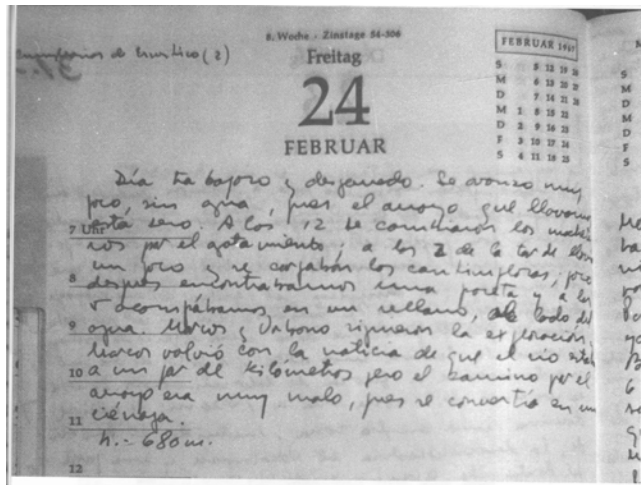 8. Woche - Zinstage 54-306
Freitag
24
FEBRUAR
FEBRUAR 1967
S 5 12 19 26
M 6 13 20 27
D 7 14 21 28
M 1 8 15 22
D 2 9 16 23
F 3 10 17 24
S 4 11 18 25
cumpleaños de (2)
Día trabajoso y desganado. Se avanzó muy
poco, sin agua, pues el arroyo que llevamos
está seco. A las 12 se cambiaron los mache
7 Uhr
ros por el agotamiento; a las 2 de la tarde llovió
un poco y se cargaron las cantimploras, poco
8
después encontrabamos una poceta y a las
5 acampábamos en un rellano, al lado del
9
agua. Marcos y Urbano siguieron la exploración,
Marcos volvió con la noticia de que el río estaba
10
a un par de kilómetros pero el camino por el
arroyo era muy malo, pues se convertía en un
11
ciénaga.
h.- 680 m.
12